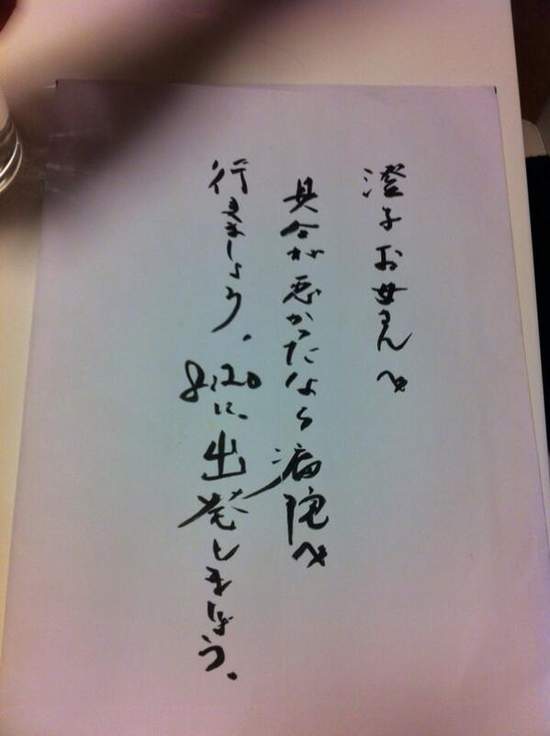 澄子お母さんへ
具合が悪かったなら病院へ
行きましょう。8:20に出発しましょう。